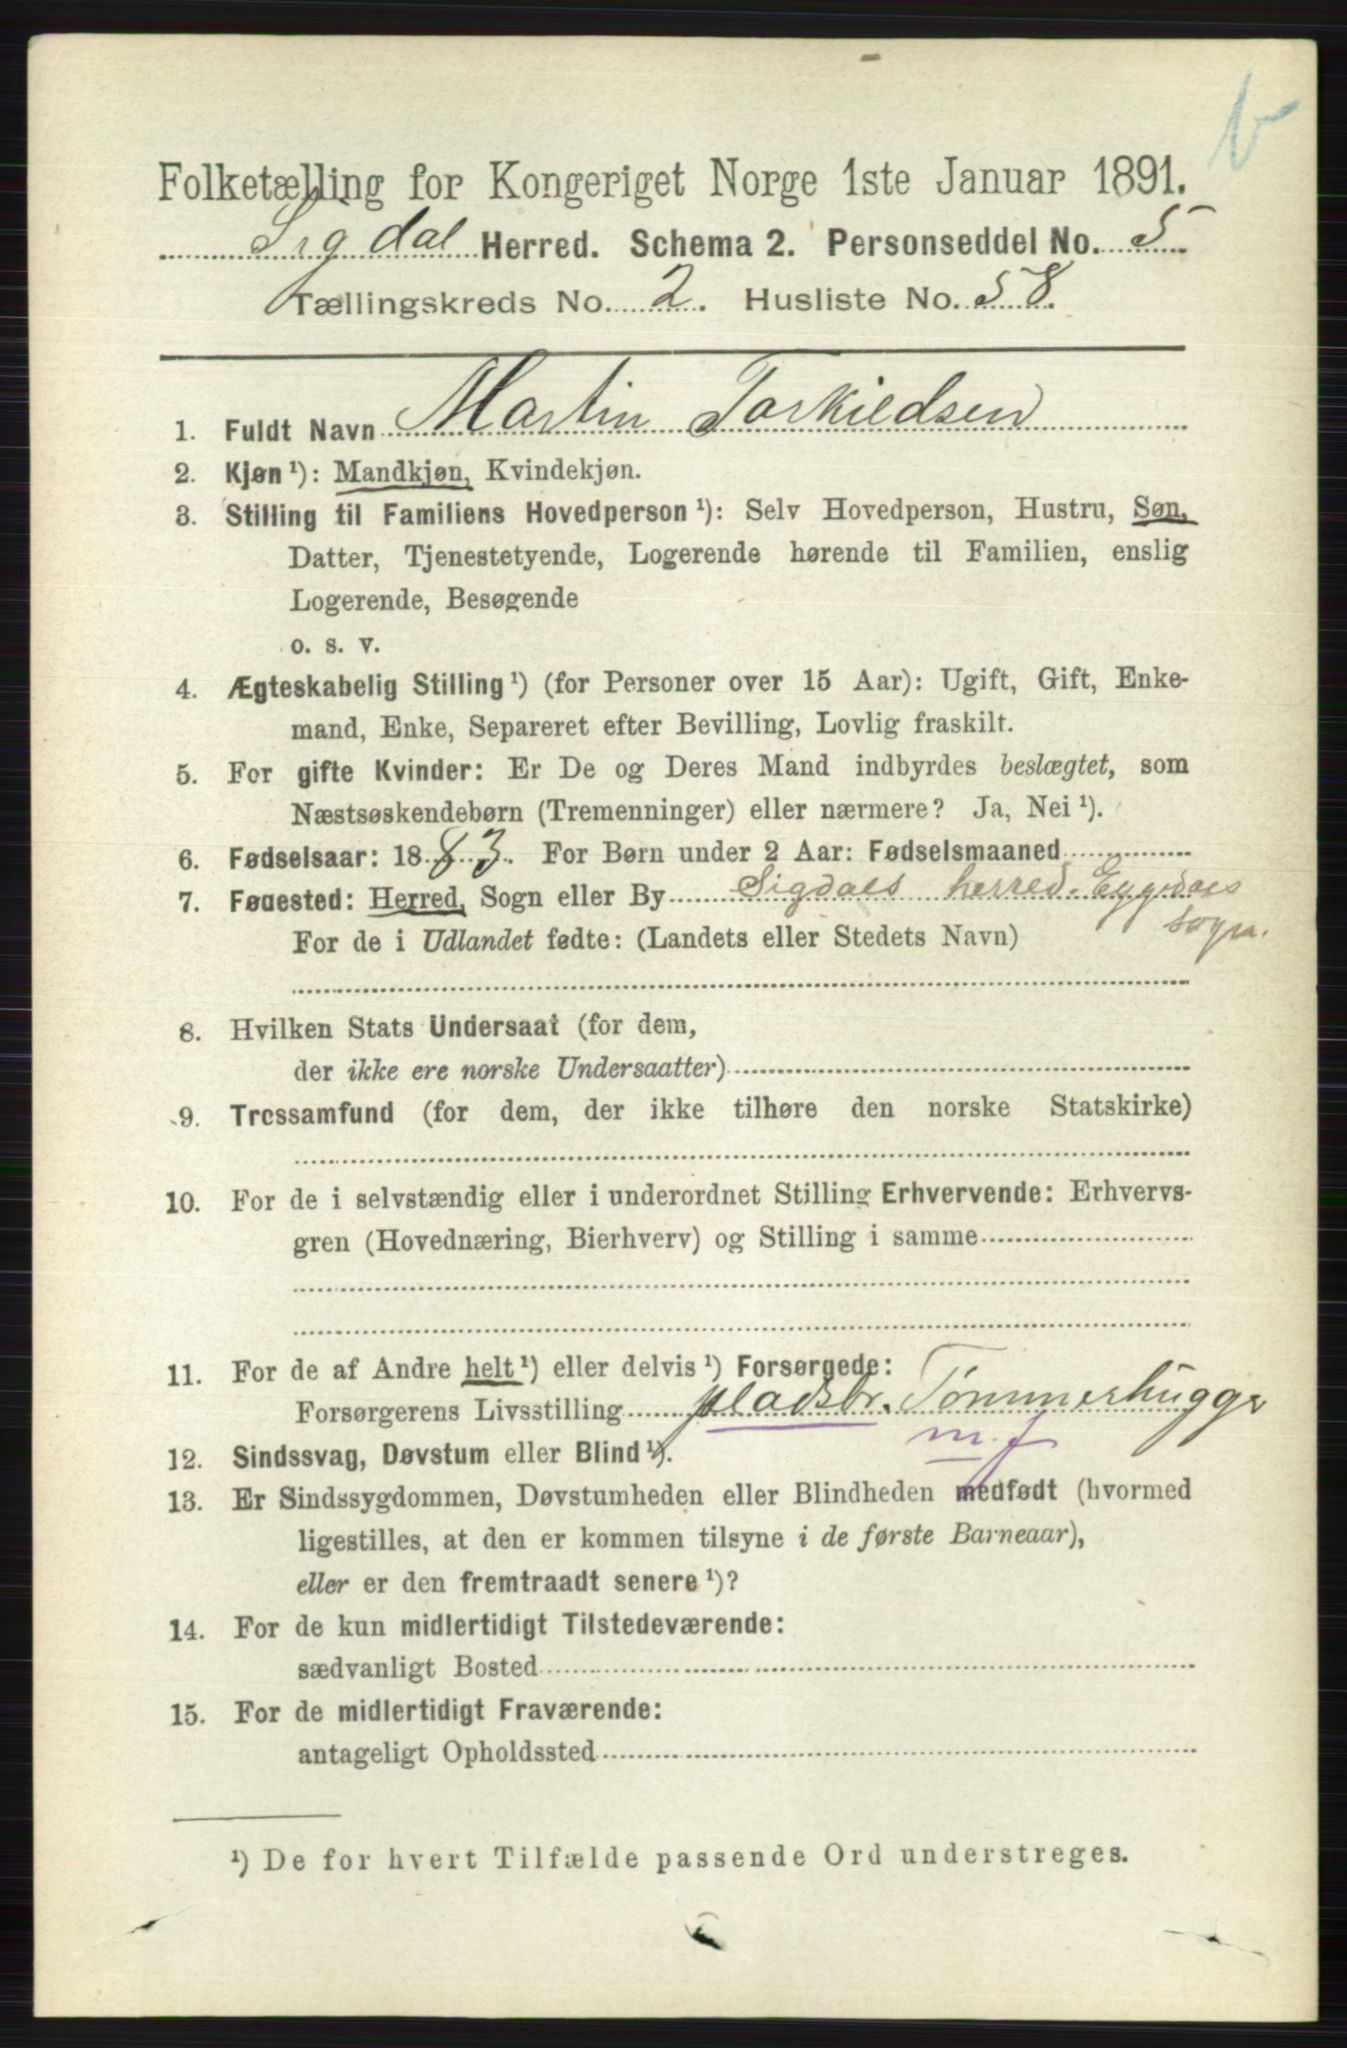 Folketælling for Kongeriget Norge 1ste Januar 1891.
Sigdal Herred. Schema 2. Personseddel No. 5
Tællingskreds No. 2. Husliste No. 58.
1. Fuldt Navn Martin Torkildsen
2. Kjøn ¹): Mandkjøn, Kvindekjøn.
3. Stilling til Familiens Hovedperson ¹): Selv Hovedperson, Hustru, Søn,
Datter, Tjenestetyende, Logerende hørende til Familien, enslig
Logerende, Besøgende
o. s. v.
4. Ægteskabelig Stilling ¹) (for Personer over 15 Aar): Ugift, Gift, Enke-
mand, Enke, Separeret efter Bevilling, Lovlig fraskilt.
5. For gifte Kvinder: Er De og Deres Mand indbyrdes beslægtet, som
Næstsøskendebørn (Tremenninger) eller nærmere? Ja, Nei ¹).
6. Fødselsaar: 1883. For Børn under 2 Aar: Fødselsmaaned
7. Fødested: Herred, Sogn eller By Sigdals herred. Eggedals
sogn.
For de i Udlandet fødte: (Landets eller Stedets Navn)
8. Hvilken Stats Undersaat (for dem,
der ikke ere norske Undersaatter)
9. Trossamfund (for dem, der ikke tilhøre den norske Statskirke)
10. For de i selvstændig eller i underordnet Stilling Erhvervende: Erhvervs-
gren (Hovednæring, Bierhverv) og Stilling i samme
11. For de af Andre helt ¹) eller delvis ¹) Forsørgede:
Forsørgerens Livsstilling pladsbr. Tömmerhugger
m. j
12. Sindssvag, Døvstum eller Blind ¹).
13. Er Sindssygdommen, Døvstumheden eller Blindheden medfødt (hvormed
ligestilles, at den er kommen tilsyne i de første Barneaar),
eller er den fremtraadt senere ¹)?
14. For de kun midlertidigt Tilstedeværende:
sædvanligt Bosted
15. For de midlertidigt Fraværende:
antageligt Opholdssted
¹) De for hvert Tilfælde passende Ord understreges.